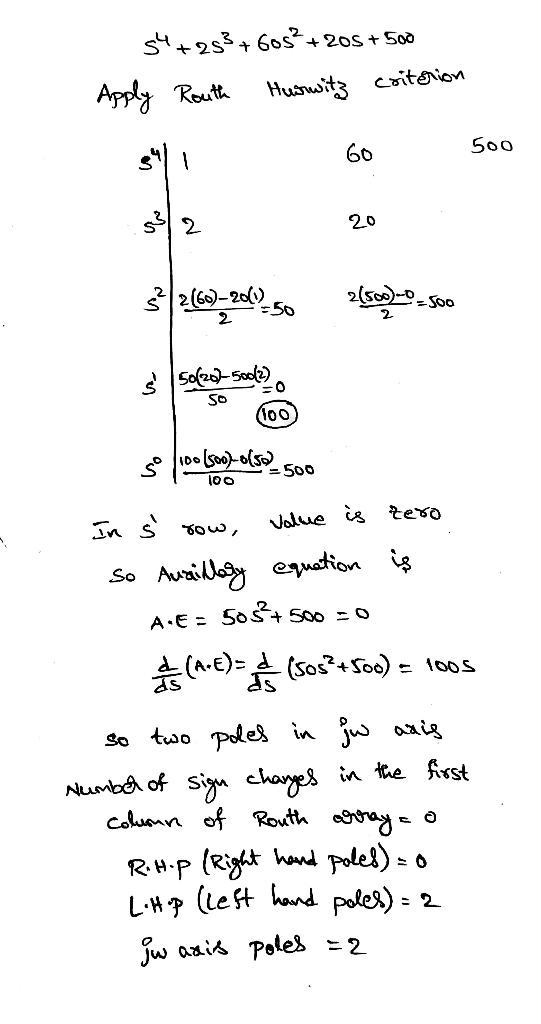 s⁴ + 2s³ + 60s² + 20s + 500
Apply Routh Hurwitz criterion
s⁴ | 1 60 500
s³ | 2 20
s² | (2(60)-20(1))/2 = 50 (2(500)-0)/2 = 500
s¹ | (50(20)-500(2))/50 = 0
100
s⁰ | (100(500)-0(50))/100 = 500
In s¹ row, value is zero
So Auxillary equation is
A.E = 50s² + 500 = 0
d/ds (A.E) = d/ds (50s²+500) = 100s
so two poles in jw axis
Number of sign changes in the first
column of Routh array = 0
R.H.P (Right hand poles) = 0
L.H.P (Left hand poles) = 2
jw axis poles = 2